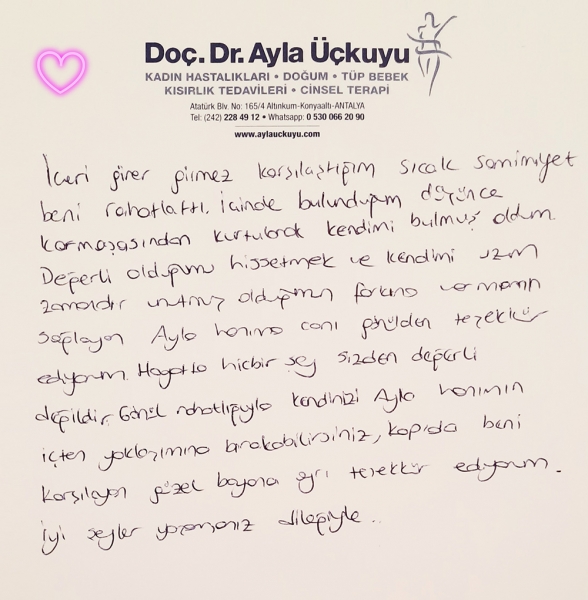 Doç. Dr. Ayla Üçkuyu
KADIN HASTALIKLARI • DOĞUM • TÜP BEBEK
KISIRLIK TEDAVİLERİ • CİNSEL TERAPİ
Atatürk Blv. No: 165/4 Altınkum-Konyaaltı-ANTALYA
Tel: (242) 228 49 12 • Whatsapp: 0 530 066 20 90
www.aylauckuyu.com
İçeri girer girmez karşılaştığım sıcak samimiyet
beni rahatlattı. İçinde bulunduğum düşünce
karmaşasından kurtularak kendimi bulmuş oldum.
Değerli olduğumu hissetmek ve kendimi uzun
zamandır unutmuş olduğumun farkına varmamı
sağlayan Ayla hanıma canı gönülden teşekkür
ediyorum. Hayatta hiçbir şey sizden değerli
değildir. Gönül rahatlığıyla kendinizi Ayla hanımın
içten yaklaşımına bırakabilirsiniz, kapıda beni
karşılayan güzel bayana ayrı teşekkür ediyorum.
İyi şeyler yaşamanız dileğiyle..